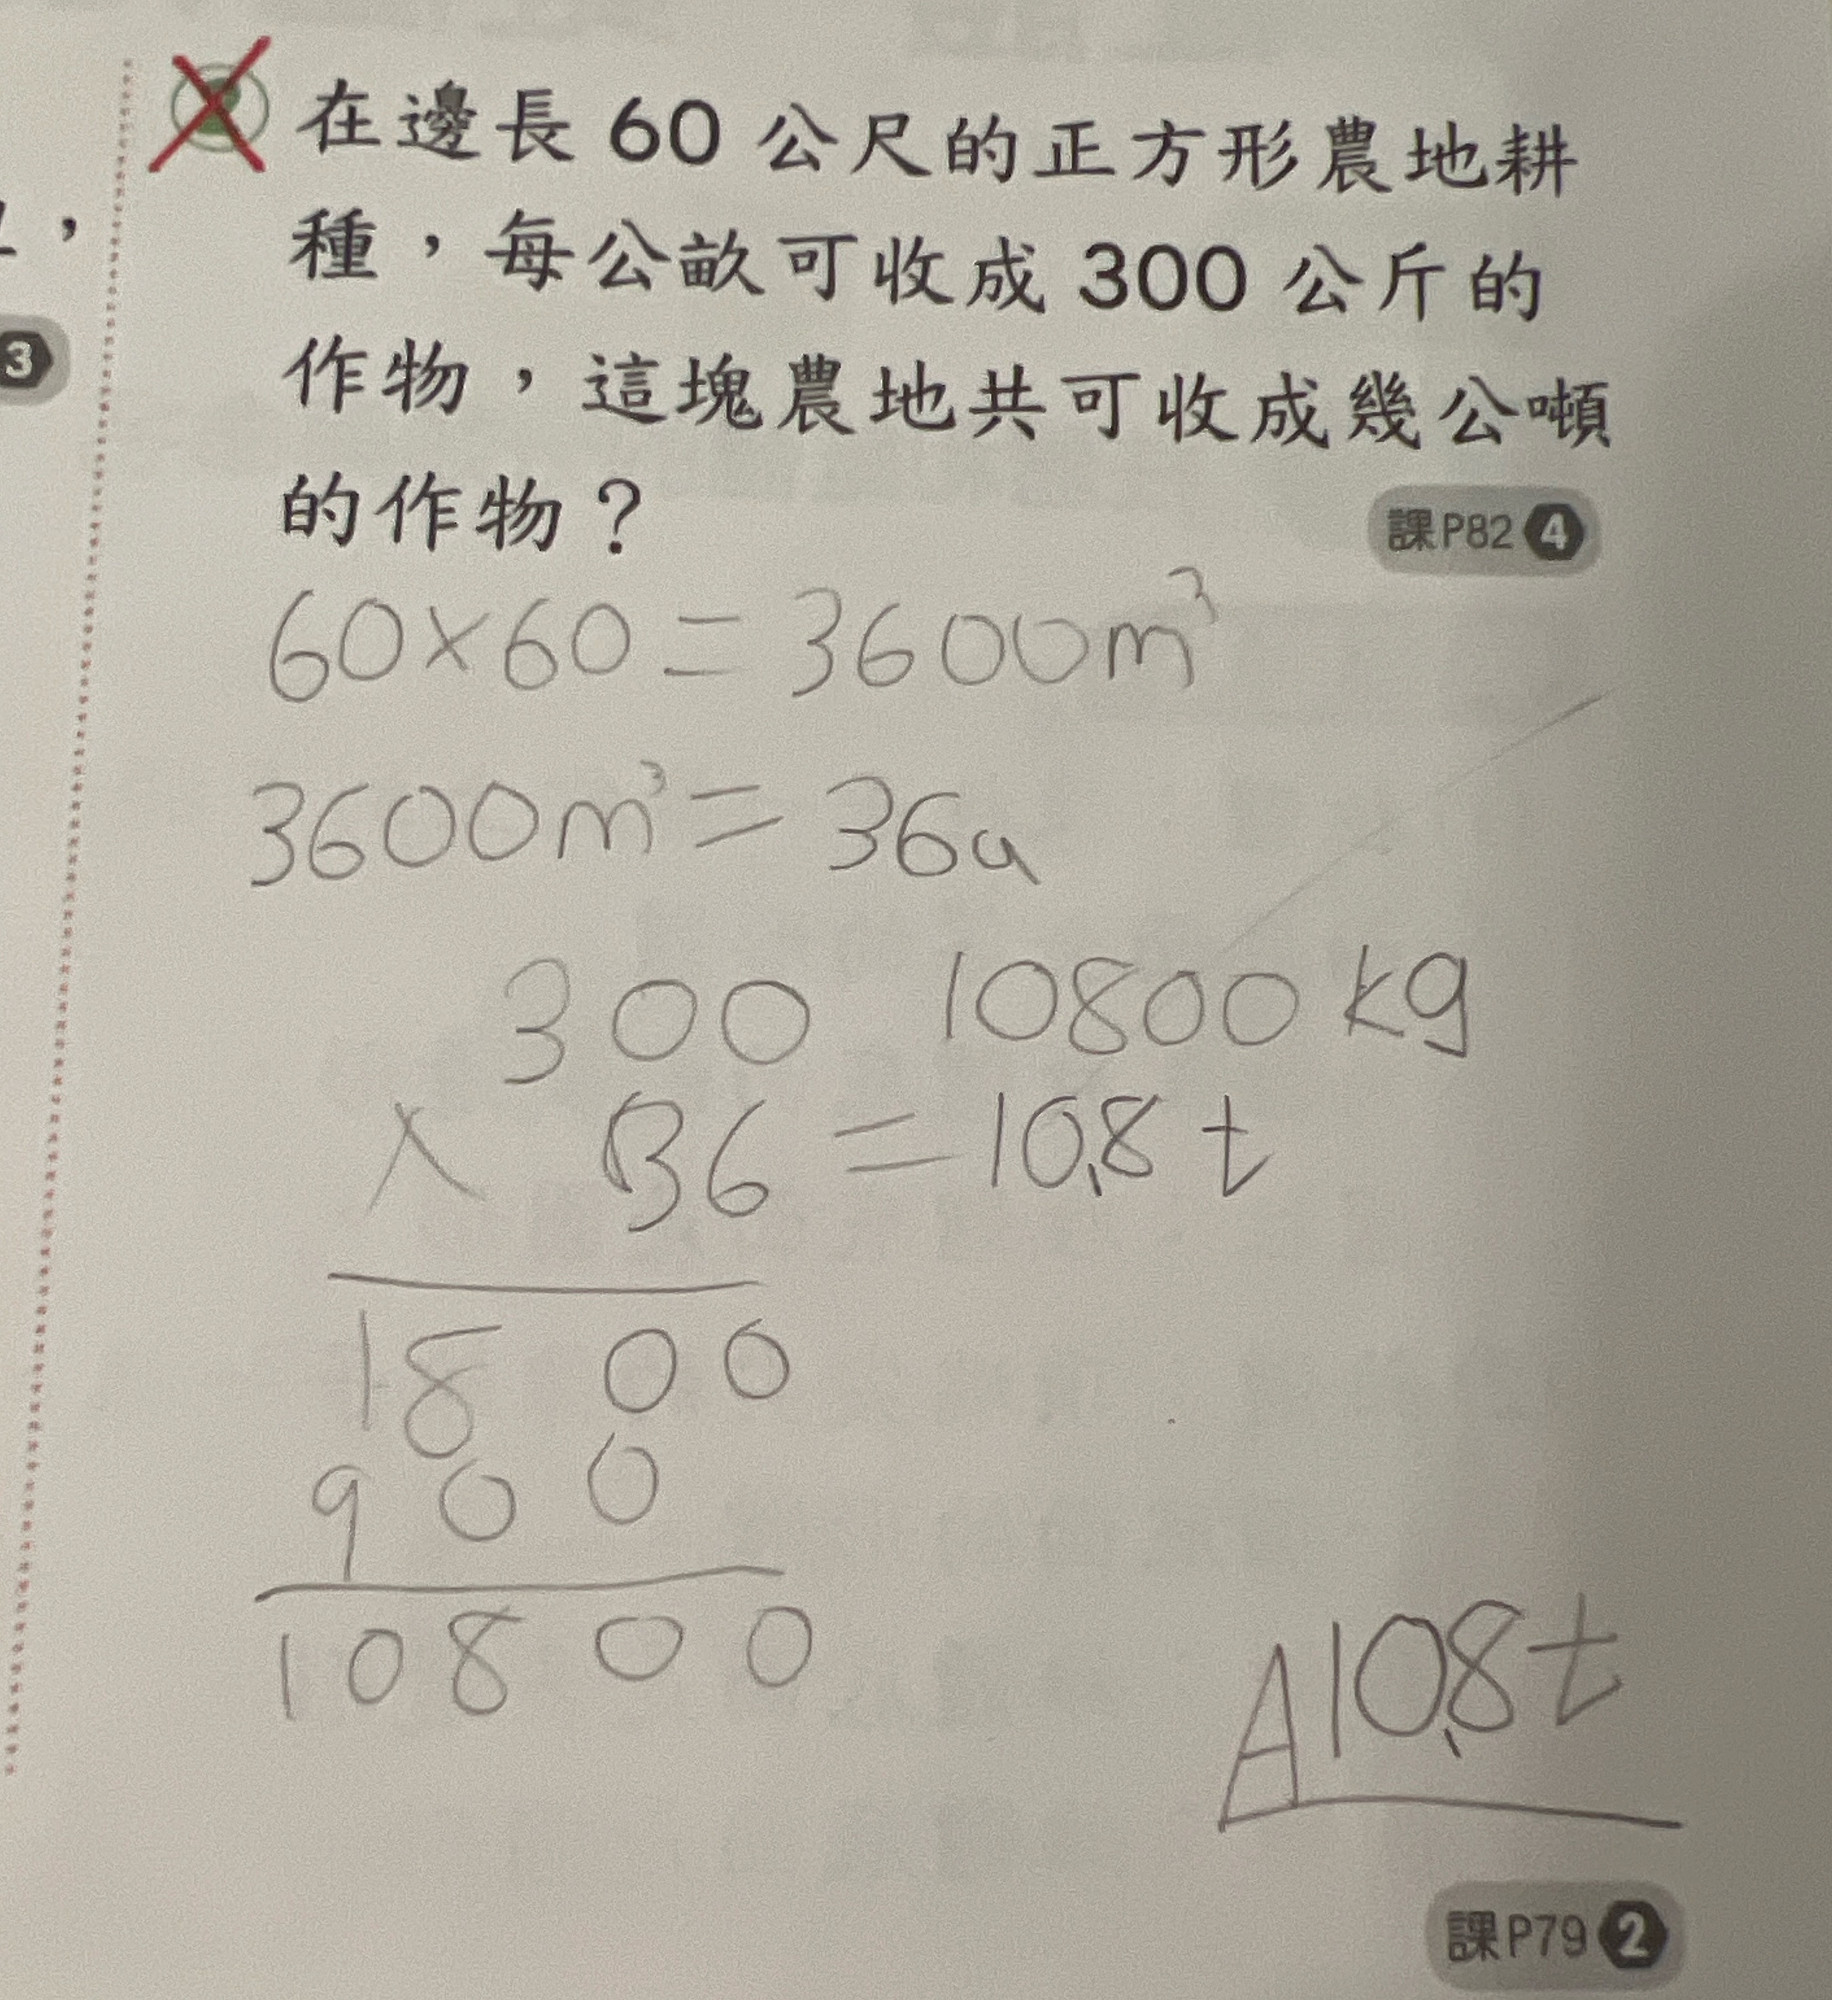 在邊長 60 公尺的正方形農地耕
種，每公畝可收成 300 公斤的
作物，這塊農地共可收成幾公噸
的作物？
課P82 4
60×60=3600m³
3600m³=36a
300 10800kg
× 36 =10.8 t
1800
900
10800
A 10.8t
課P79 2
，
3